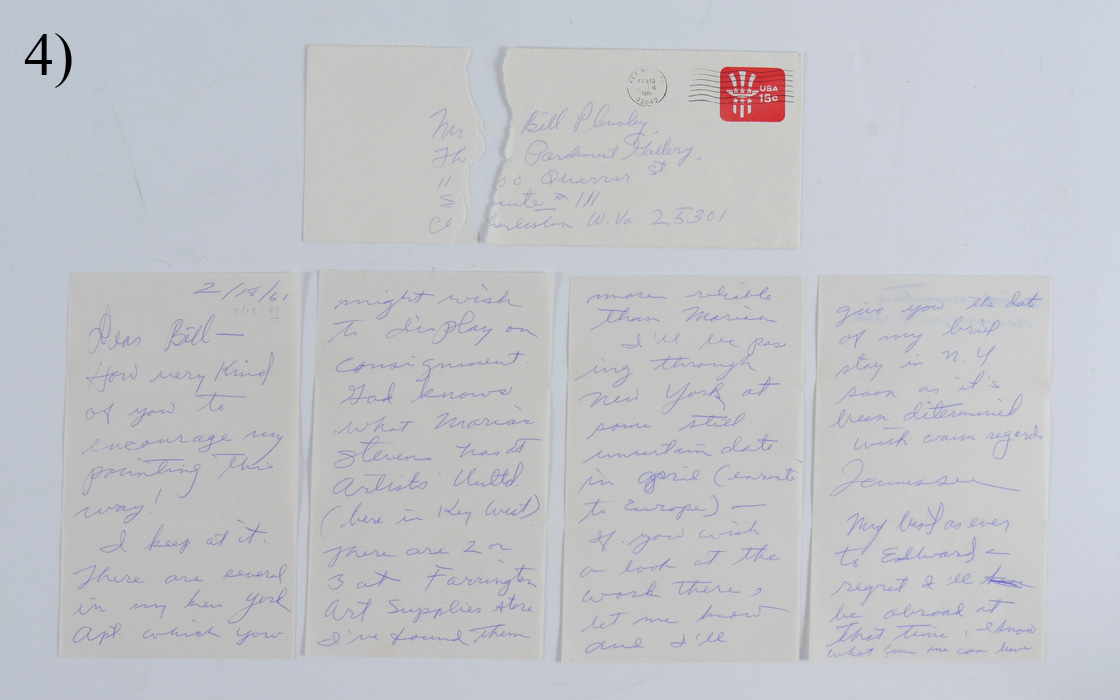 4)
USA
15c
33040
Mr Bill P
Th Parchment Gallery,
11 00 Quarrier St
S uite # 111
Ch harleston W. Va 25301
2/18/61
Dear Bill—
How very Kind
of you to
encourage my
painting this
way!
I keep at it.
There are several
in my New York
Apt which you
might wish
to display on
consignment.
God knows
what Marion
Stevens has at
Artists Unltd.
(here in Key West)
There are 2 or
3 at Farrington
Art Supplies store
I've found them
more reliable
than Marion
I'll be pass
ing through
New York at
some still
uncertain date
in april (enroute
to Europe) —
If you wish
a look at the
work there,
let me know
and I'll
give you the date
of my brief
stay in N.Y.
soon as it's
been determined
with warm regards
Tennessee
My best as ever
to Edward —
regret I'll
be abroad at
that time, I know
what fun we can have